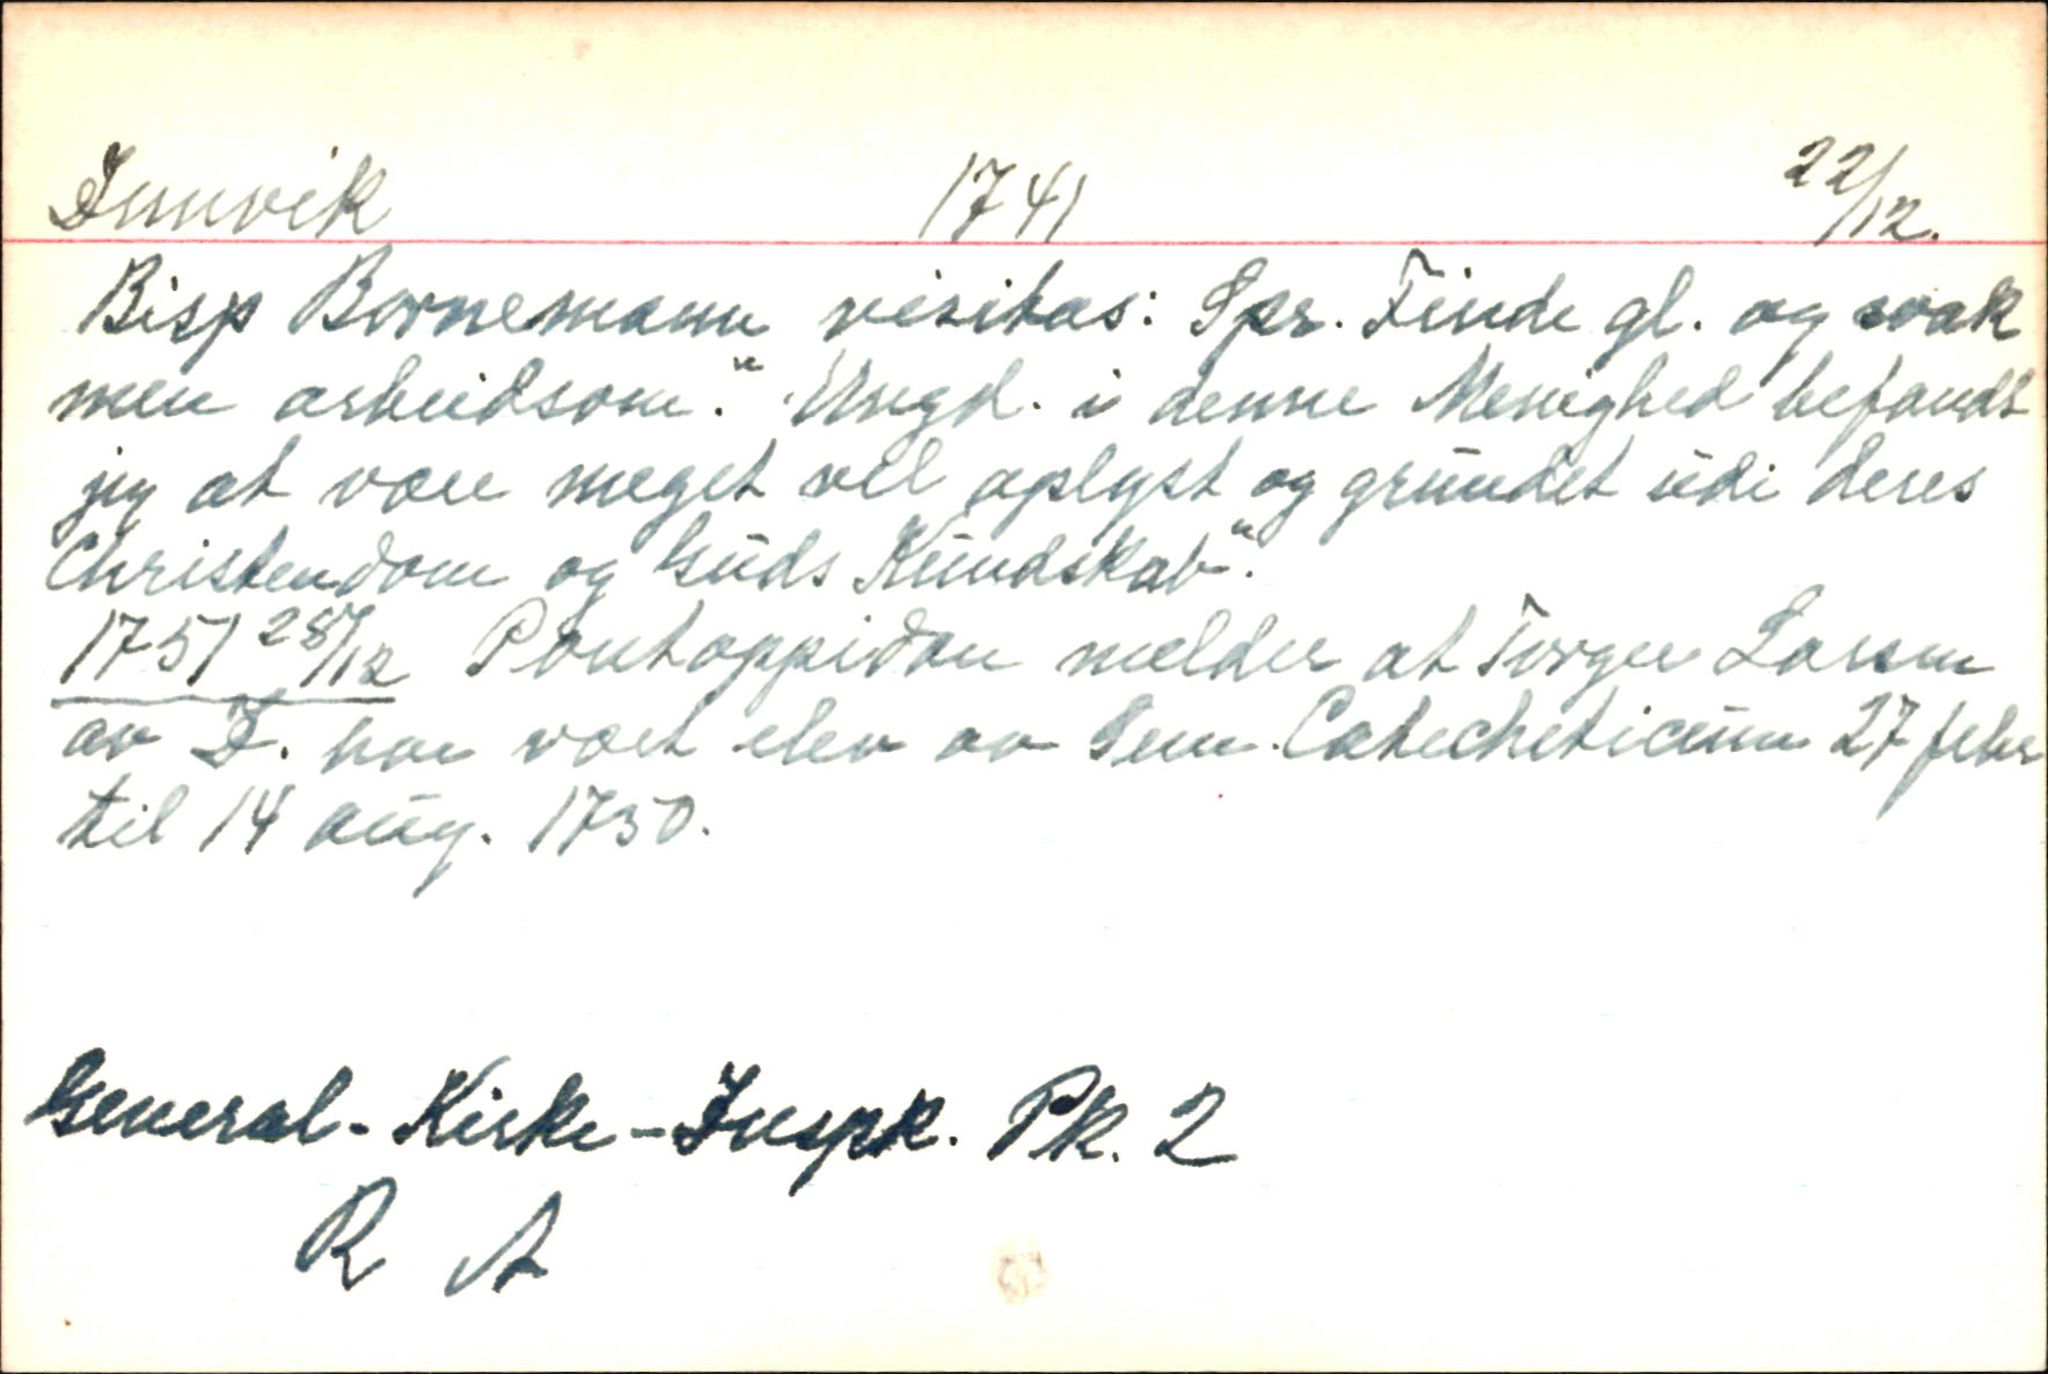 Innvik 1741 22/12.
Bisp Bornemann visitas: Spr. Finde gl. og svak
men arbeidsom." Ungd. i denne Menighed befandt
jeg at være meget vel oplyst og grundet udi deres
Christendom og Guds Kundskab".
1751 28/12 Pontoppidan melder at Torger Larsen
av I. har vært elev av Sem. Catecheticum 27 febr
til 14 aug. 1750.
General-Kirke-Inspk. Pk. 2
R A